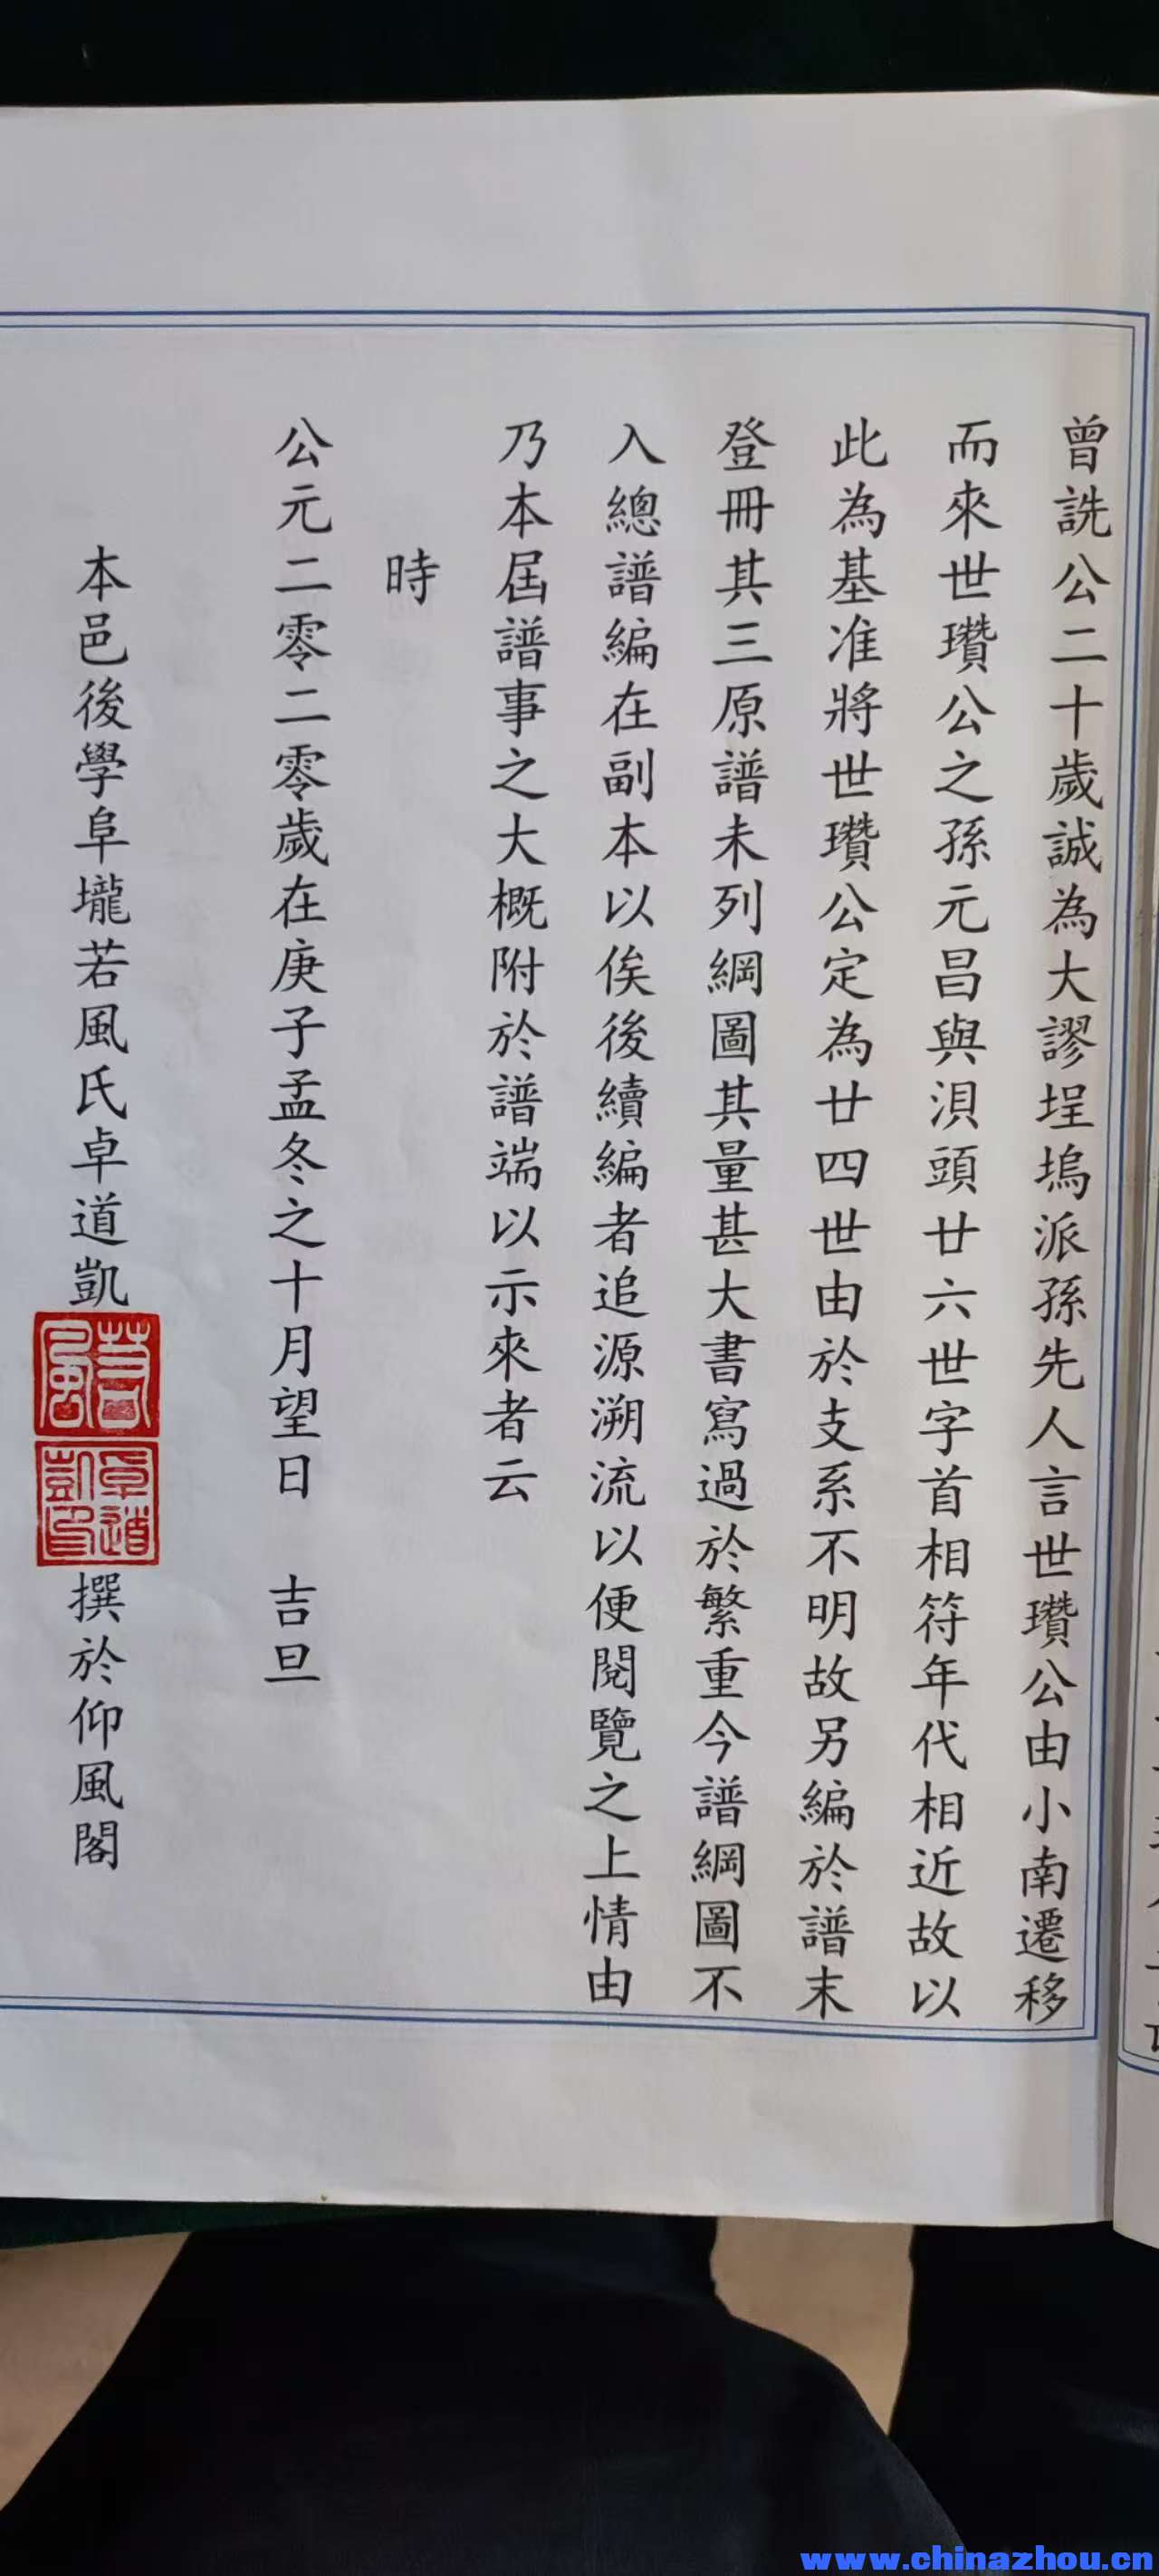 曾詵公二十歲誠為大謬埕塢派孫先人言世瓚公由小南遷移
而來世瓚公之孫元昌與浿頭廿六世字首相符年代相近故以
此為基准將世瓚公定為廿四世由於支系不明故另編於譜末
登冊其三原譜未列綱圖其量甚大書寫過於繁重今譜綱圖不
入總譜編在副本以俟後續編者追源溯流以便閱覽之上情由
乃本屆譜事之大概附於譜端以示來者云
時
公元二零二零歲在庚子孟冬之十月望日 吉旦
本邑後學阜壠若風氏卓道凱
若風
卓道凱印
撰於仰風閣
www.chinazhou.cn